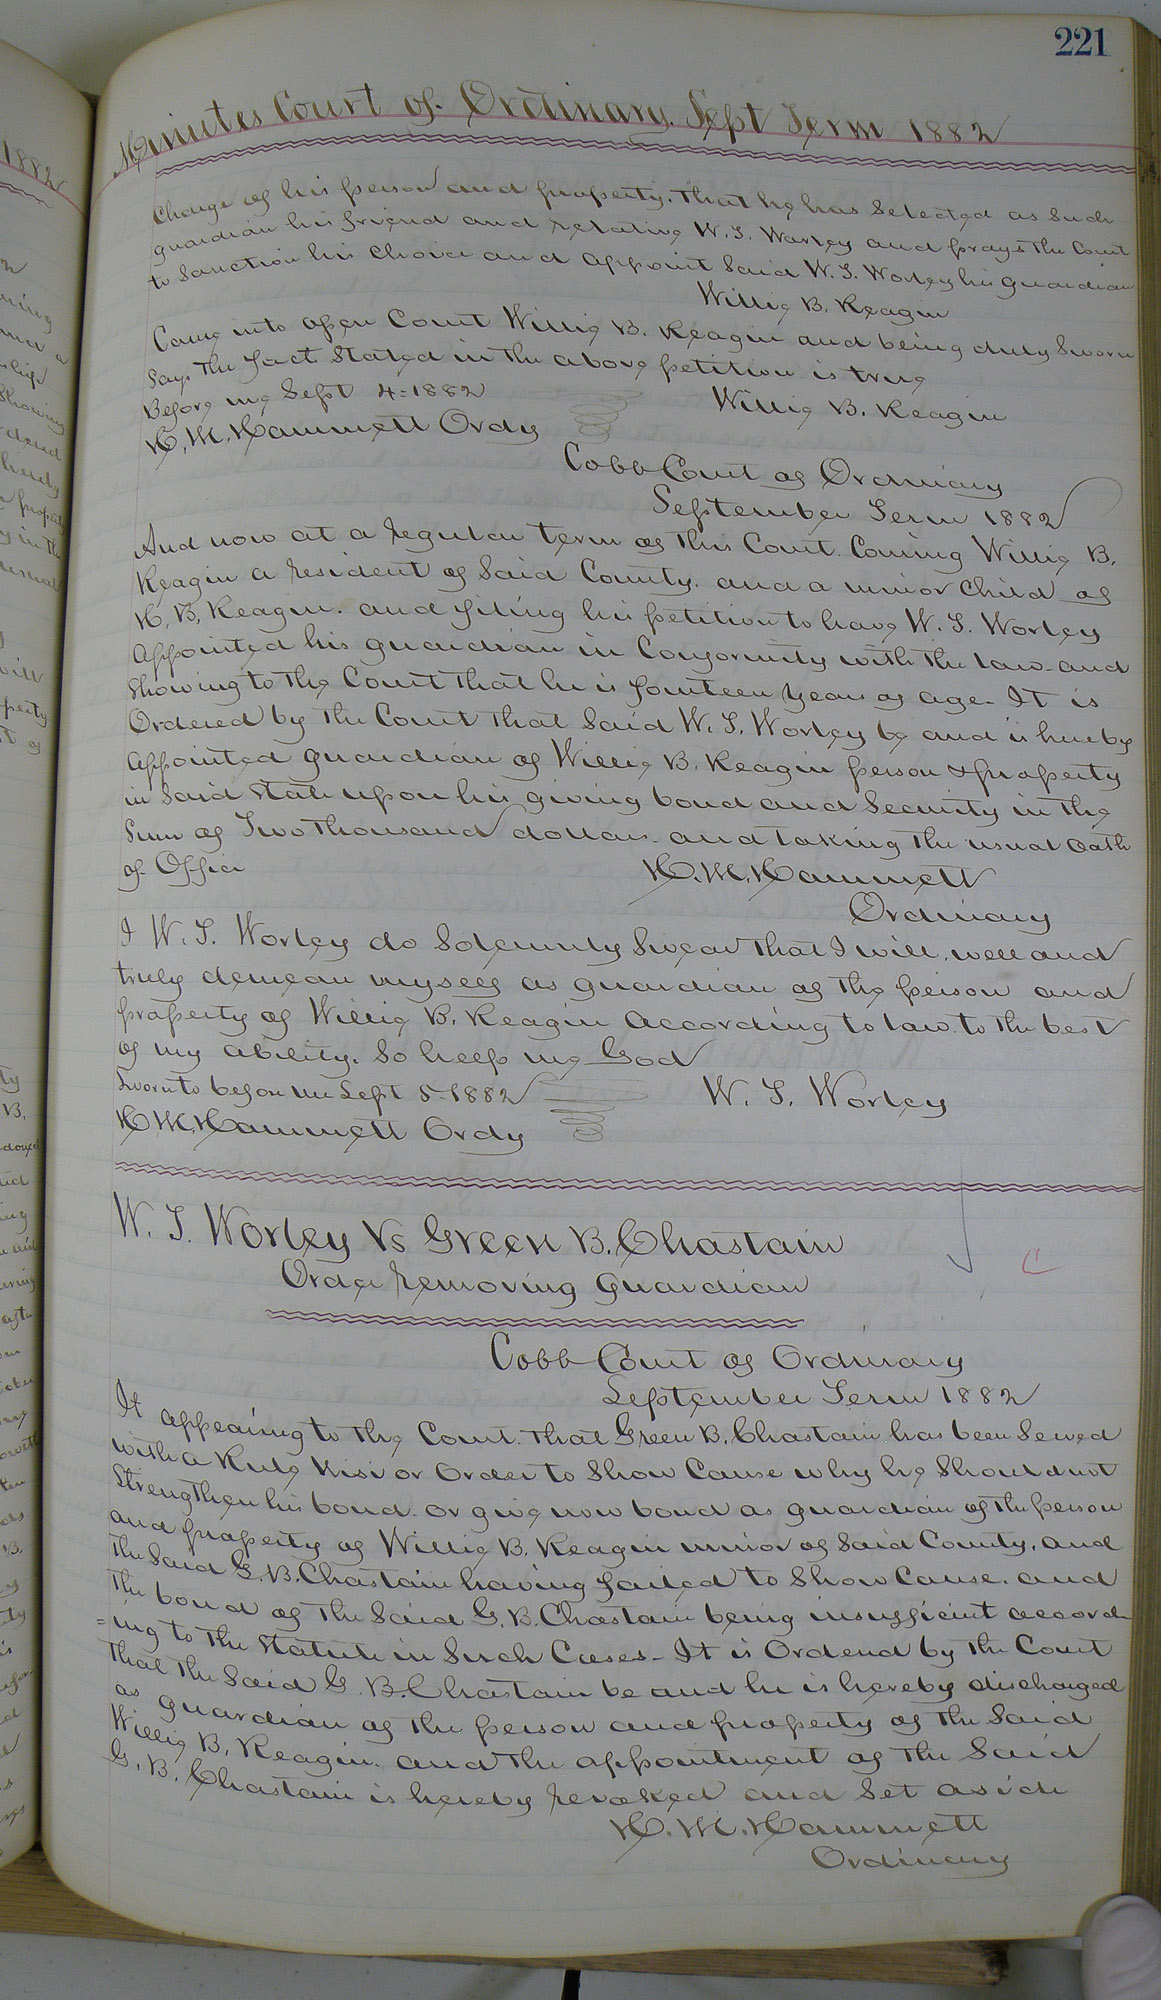 221
Minutes Court of Ordinary. Sept Term 1882
Charge of his person and property. That he has Selected as Such
guardian his friend and relative W. J. Worley and prays The Court
to Sanction his Choice and Appoint Said W. J. Worley his guardian
Willie B. Reagin
Came into open Court Willie B. Reagin and being duly Sworn
Says The fact Stated in the above petition is true
Before me Sept 4-1882 Willie B. Reagin
H. M. Hammett Ordy
Cobb Court of Ordinary
September Term 1882
And now at a regular term of This Court Coming Willie B.
Reagin a resident of Said County. and a minor Child of
H. B. Reagin. and filing his petition to have W. J. Worley
Appointed his guardian in Conformity with the law and
Showing to The Court That he is fourteen years of age - It is
Ordered by The Court That Said W. J. Worley be and is hereby
Appointed guardian of Willie B. Reagin person & property
in Said State upon his giving bond and Security in The
Sum of Two Thousand dollars and taking The usual Oath
of Office H. M. Hammett
Ordinary
I W. J. Worley do Solemnly Swear That I will, well and
truly demean myself as guardian of The person and
property of Willie B. Reagin According to law to The best
of my ability. So help me God
Sworn to before me Sept 5-1882 W. J. Worley
H. M. Hammett Ordy
W. J. Worley Vs Green B. Chastain
Order removing Guardian
C
Cobb Court of Ordinary
September Term 1882
It appearing to The Court That Green B. Chastain has been Served
with a Rule Nisi or Order to Show Cause why he Should not
Strengthen his bond. or give new bond as guardian of The person
and property of Willie B. Reagin minor of Said County. and
The Said G. B. Chastain having failed to Show Cause. and
The bond of The Said G. B. Chastain being insufficient accord
=ing to The Statute in Such Cases - It is Ordered by The Court
That The Said G. B. Chastain be and he is hereby discharged
as guardian of The person and property of The Said
Willie B. Reagin. and The appointment of The Said
G. B. Chastain is hereby revoked and Set aside
H. M. Hammett
Ordinary